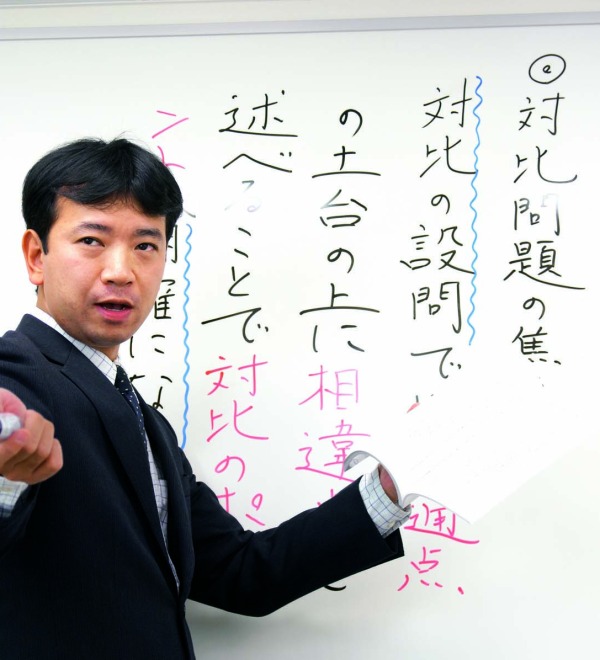 ② 対比問題の焦
対比の設問で 通点
の土台の上に相違
述べることで対比のポ
ント 確にな